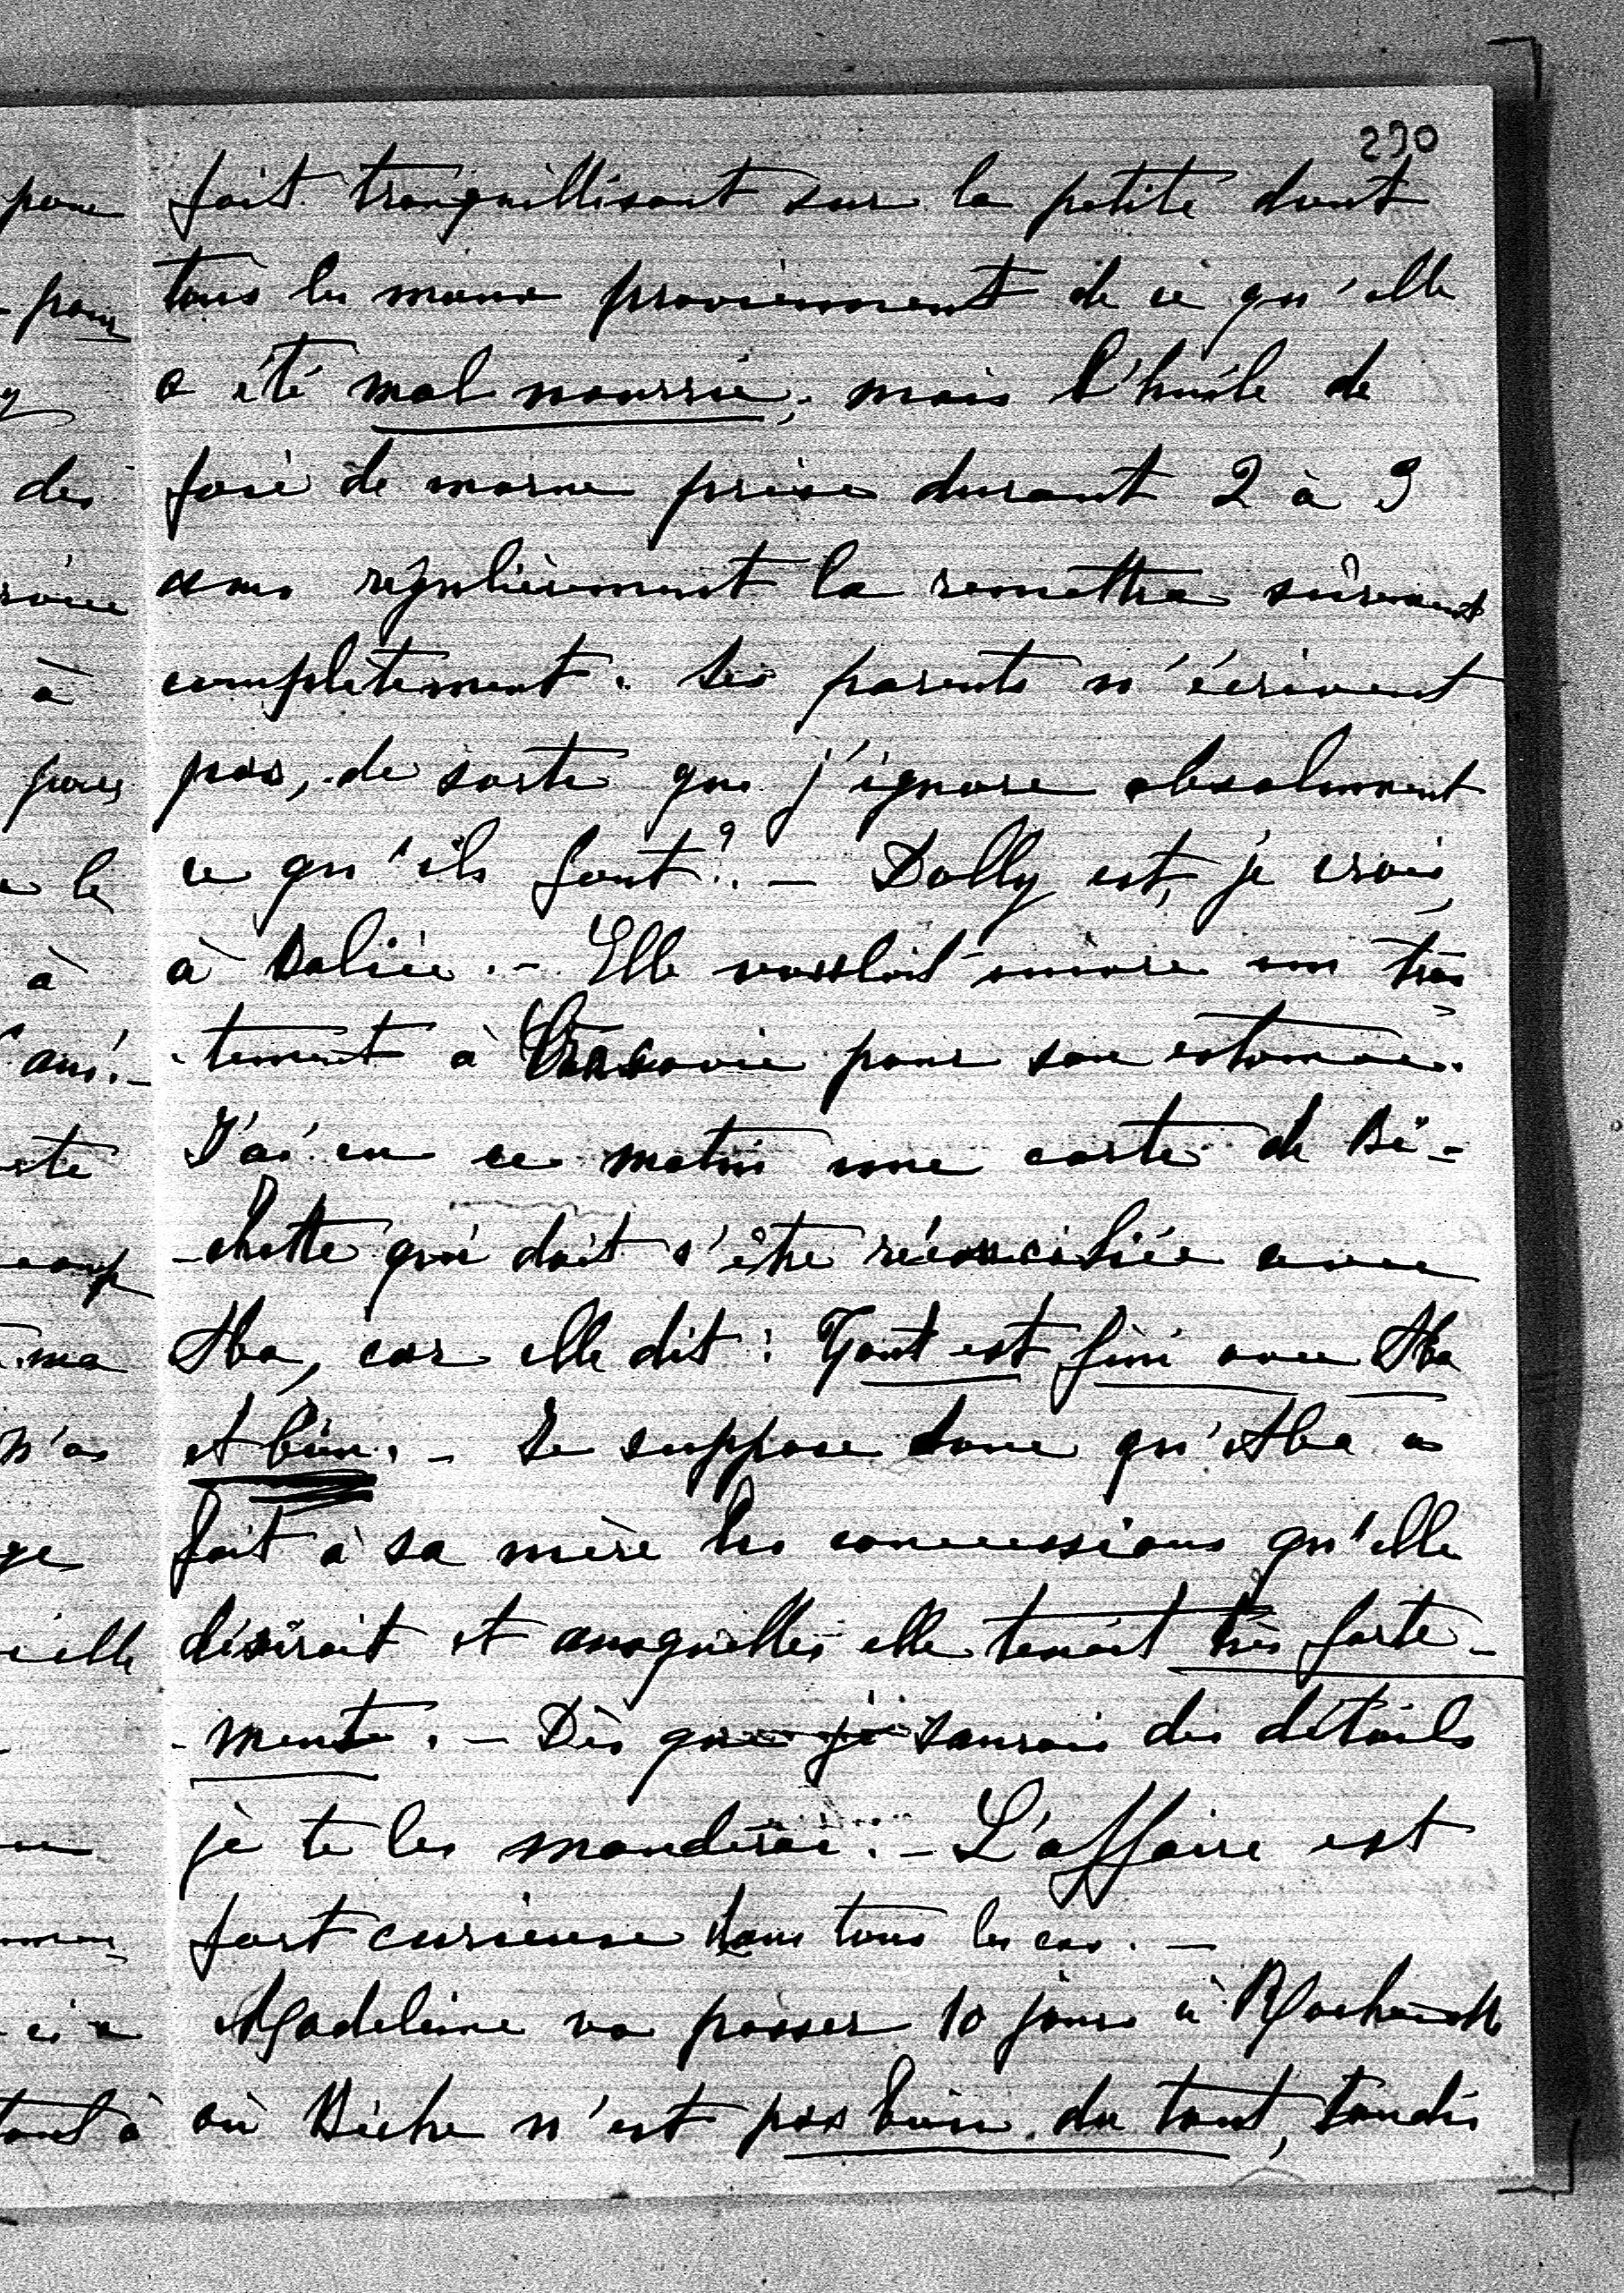 290
fait tranquillisant sur la petite dont
tous les maux proviennent de ce qu'elle
a été mal nourrie; mais l'huile de
foie de morue prise durant 2 à 3
ans régulièrement la remettra sûrement
complètement. Ses parents n'écrivent
pas, de sorte que j'ignore absolument
ce qu'ils font? — Dolly est, je crois,
à Dalie. — Elle voulait suivre un trai
-tement à Cracovie pour son estomac.
J'ai eu ce matin une carte de Bi-
-chette qui doit s'être réconciliée avec
Aba, car elle dit: Tout est fini avec Aba
et bien. — Je suppose donc qu'Aba a
fait à sa mère les concessions qu'elle
désirait et auxquelles elle tenait très forte-
-ment. — Dès que je saurais des détails
je te les manderai. — L'affaire est
fort curieuse dans tous les cas. —
Madeleine va passer 10 jours à
où Biche n'est pas bien du tout, tandis